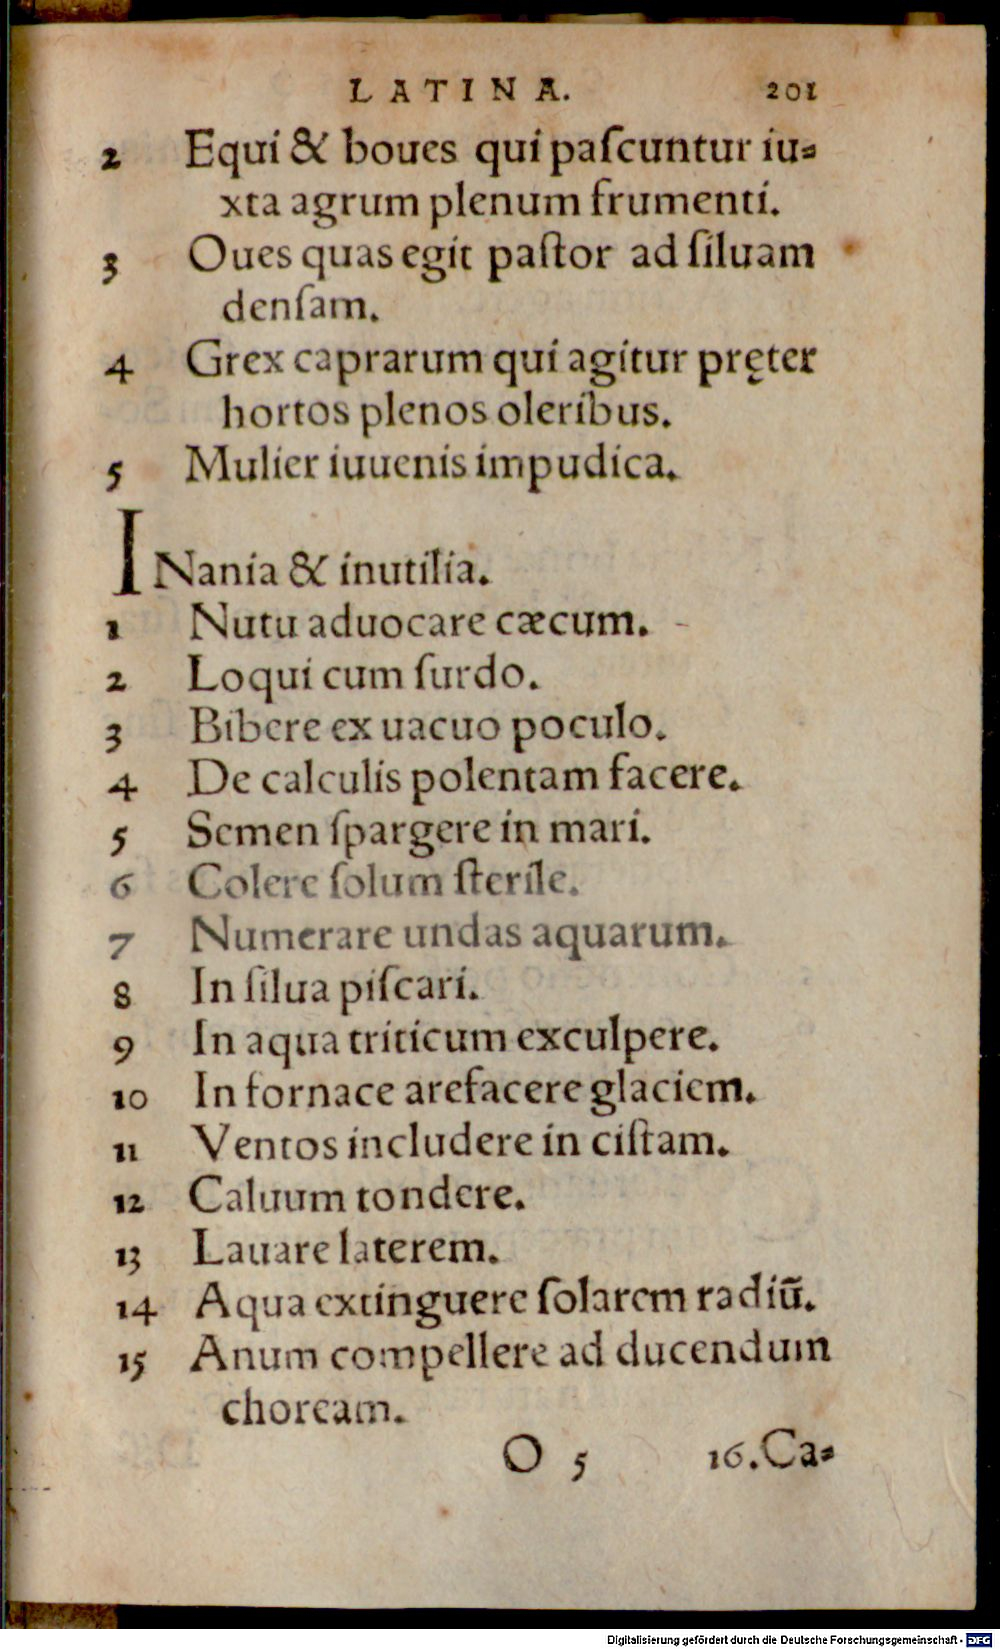 LATINA. 201
2 Equi & boues qui paſcuntur iu⸗
xta agrum plenum frumenti.
3 Oues quas egit paſtor ad ſiluam
denſam.
4 Grex caprarum qui agitur pręter
hortos plenos oleribus.
5 Mulier iuuenis impudica.
INania & inutilia.
1 Nutu aduocare cæcum.
2 Loqui cum ſurdo.
3 Bibere ex uacuo poculo.
4 De calculis polentam facere.
5 Semen ſpargere in mari.
6 Colere ſolum ſterile.
7 Numerare undas aquarum.
8 In ſilua piſcari.
9 In aqua triticum exculpere.
10 In fornace arefacere glaciem.
11 Ventos includere in ciſtam.
12 Caluum tondere.
13 Lauare laterem.
14 Aqua extinguere ſolarem radiū.
15 Anum compellere ad ducendum
choream.
O 5 16. Ca⸗
Digitalisierung gefördert durch die Deutsche Forschungsgemeinschaft - DFG